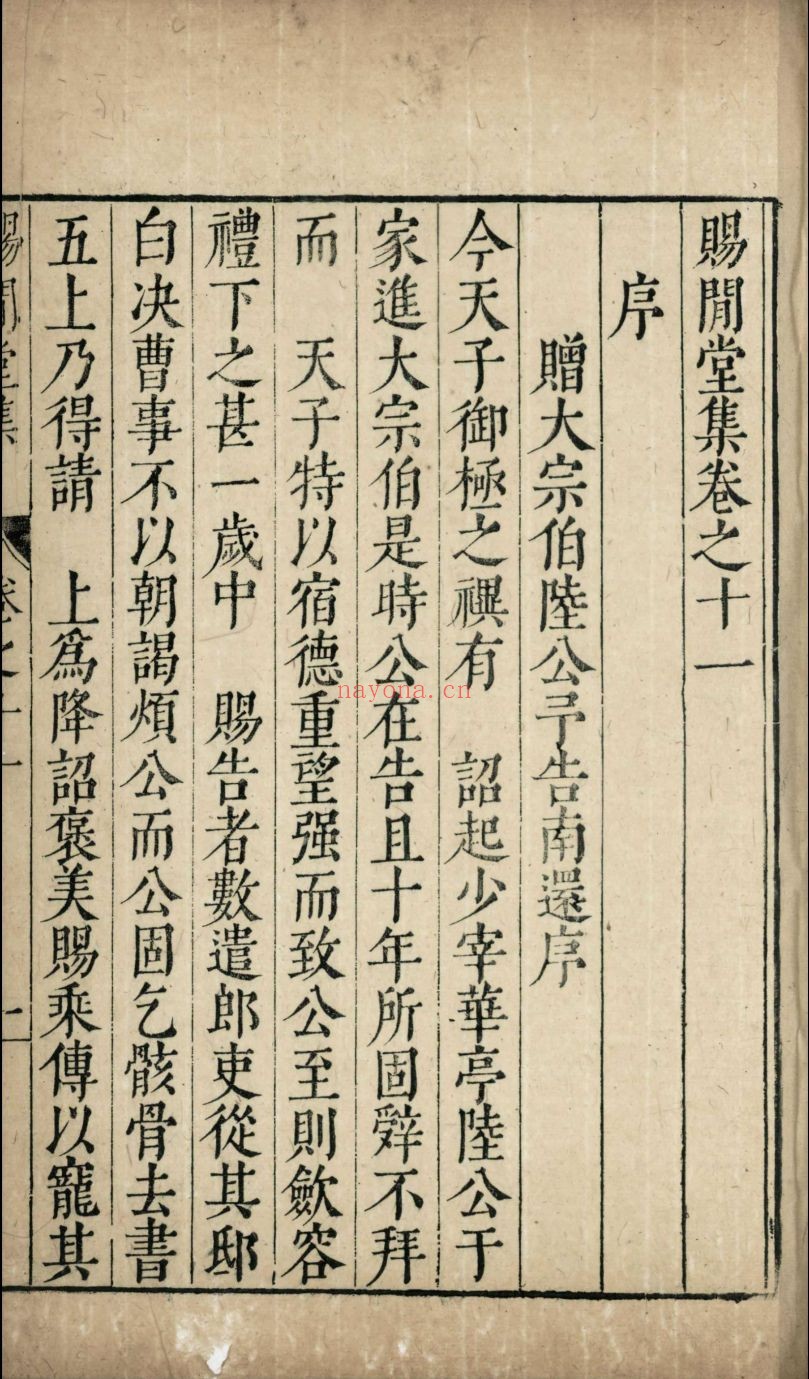 賜閒堂集卷之十一
序
贈大宗伯陸公予告南還序
今天子御極之禩有　詔起少宰華亭陸公于
家進大宗伯是時公在告且十年所固辝不拜
而　天子特以宿德重望强而致公至則斂容
禮下之甚一歲中　賜告者數遣郎吏從其邸
白决曹事不以朝謁煩公而公固乞骸骨去書
五上乃得請　上爲降詔褒美賜乘傳以寵其
賜閒堂集　卷之十一　一
nayona.cn